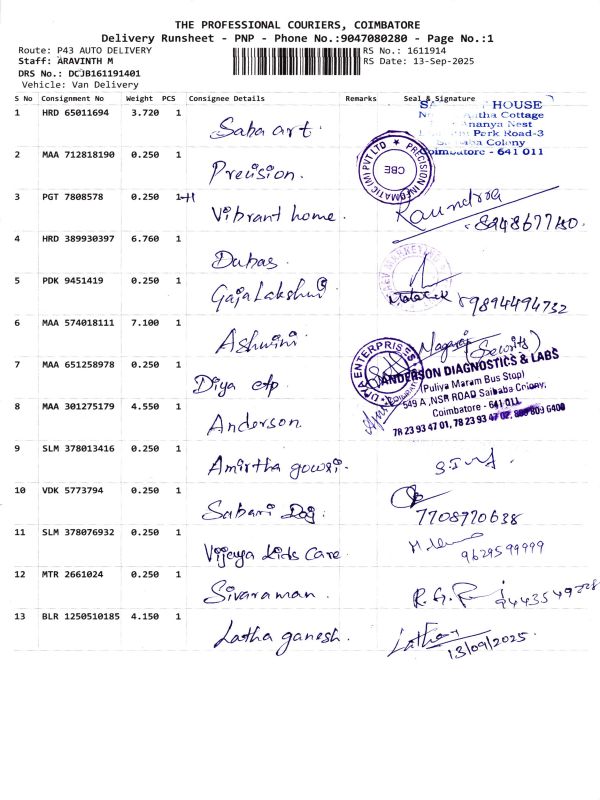 THE PROFESSIONAL COURIERS, COIMBATORE
Delivery Runsheet - PNP - Phone No.:9047080280 - Page No.:1
Route: P43 AUTO DELIVERY
RS No.: 1611914
Staff: ARAVINTH M
RS Date: 13-Sep-2025
DRS No.: DCJB161191401
Vehicle: Van Delivery
S No Consignment No Weight PCS Consignee Details Remarks Seal & Signature
1 HRD 65011694 3.720 1 Saba art.
HOUSE
Cottage
Nest
Park Road-3
Colony
Coimbatore - 641 011
2 MAA 712818190 0.250 1 Precision.
PRECISION INFOMATIC (M) PVT LTD
CBE
3 PGT 7808578 0.250 1 Vibrant home.
4 HRD 389930397 6.760 1 Dubas.
5 PDK 9451419 0.250 1 Gaja Lakshmi
9894494732
6 MAA 574018111 7.100 1 Ashwini
Nagaraj
7 MAA 651258978 0.250 1 Diya etp.
DIYA ENTERPRISES
8 MAA 301275179 4.550 1 Anderson.
ANDERSON DIAGNOSTICS & LABS
(Puliya Maram Bus Stop)
549 A ,NSR ROAD Saibaba Colony,
Coimbatore - 641 011.
78 23 93 47 01, 78 23 93 47 02,
9 SLM 378013416 0.250 1 Amirtha gowri.
10 VDK 5773794 0.250 1 Sabari
7708770638
11 SLM 378076932 0.250 1 Vijaya kids care.
9629599999
12 MTR 2661024 0.250 1 Sivaraman.
13 BLR 1250510185 4.150 1 Latha ganesh.
Latha
13/09/2025.